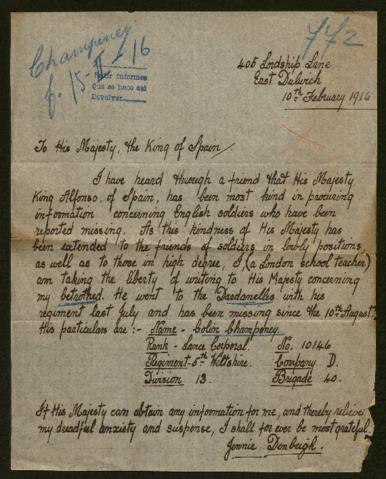 Champeney
772
f. 15-II-16
Pedir informes
Que se hace así
Devolver
406 Lordship Lane
East Dulwich
10th February 1916
To His Majesty, the King of Spain,
I have heard through a friend that His Majesty
King Alfonso, of Spain, has been most kind in procuring
information concerning English soldiers who have been
reported missing. As this kindness of His Majesty has
been extended to the friends of soldiers in lowly positions,
as well as to those in high degree, I, (a London school teacher)
am taking the liberty of writing to His Majesty concerning
my betrothed. He went to the Dardanelles with his
regiment last July and has been missing since the 10th August.
His particulars are :- Name - Colin Champeney.
Rank - Lance Corporal. No. 10146
Regiment - 5th Wiltshire. Company D.
Division 13. Brigade 40.
If His Majesty can obtain any information for me, and thereby relieve
my dreadful anxiety and suspense, I shall for ever be most grateful.
Jennie Denbeigh.